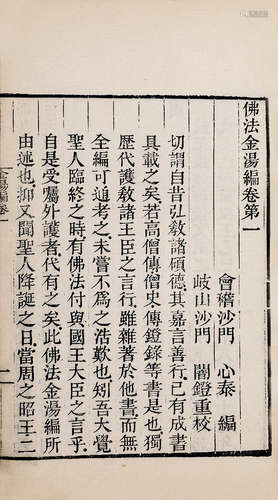 佛法金湯編卷第一
會稽沙門 心泰 編
岐山沙門 闍鐙重校
切謂自昔弘敎諸碩德其嘉言善行已有成書
具載之矣若高僧傳僧史傳鐙錄等書是也獨
歷代護敎諸王臣之言行雖雜著於他書而無
全編可通考之未嘗不爲之浩歎也矧吾大覺
聖人臨終之時有佛法付與國王大臣之言乎
自是受屬外護者代有之矣此佛法金湯編所
由述也抑又聞聖人降誕之日當周之昭王二
金湯編卷一
一